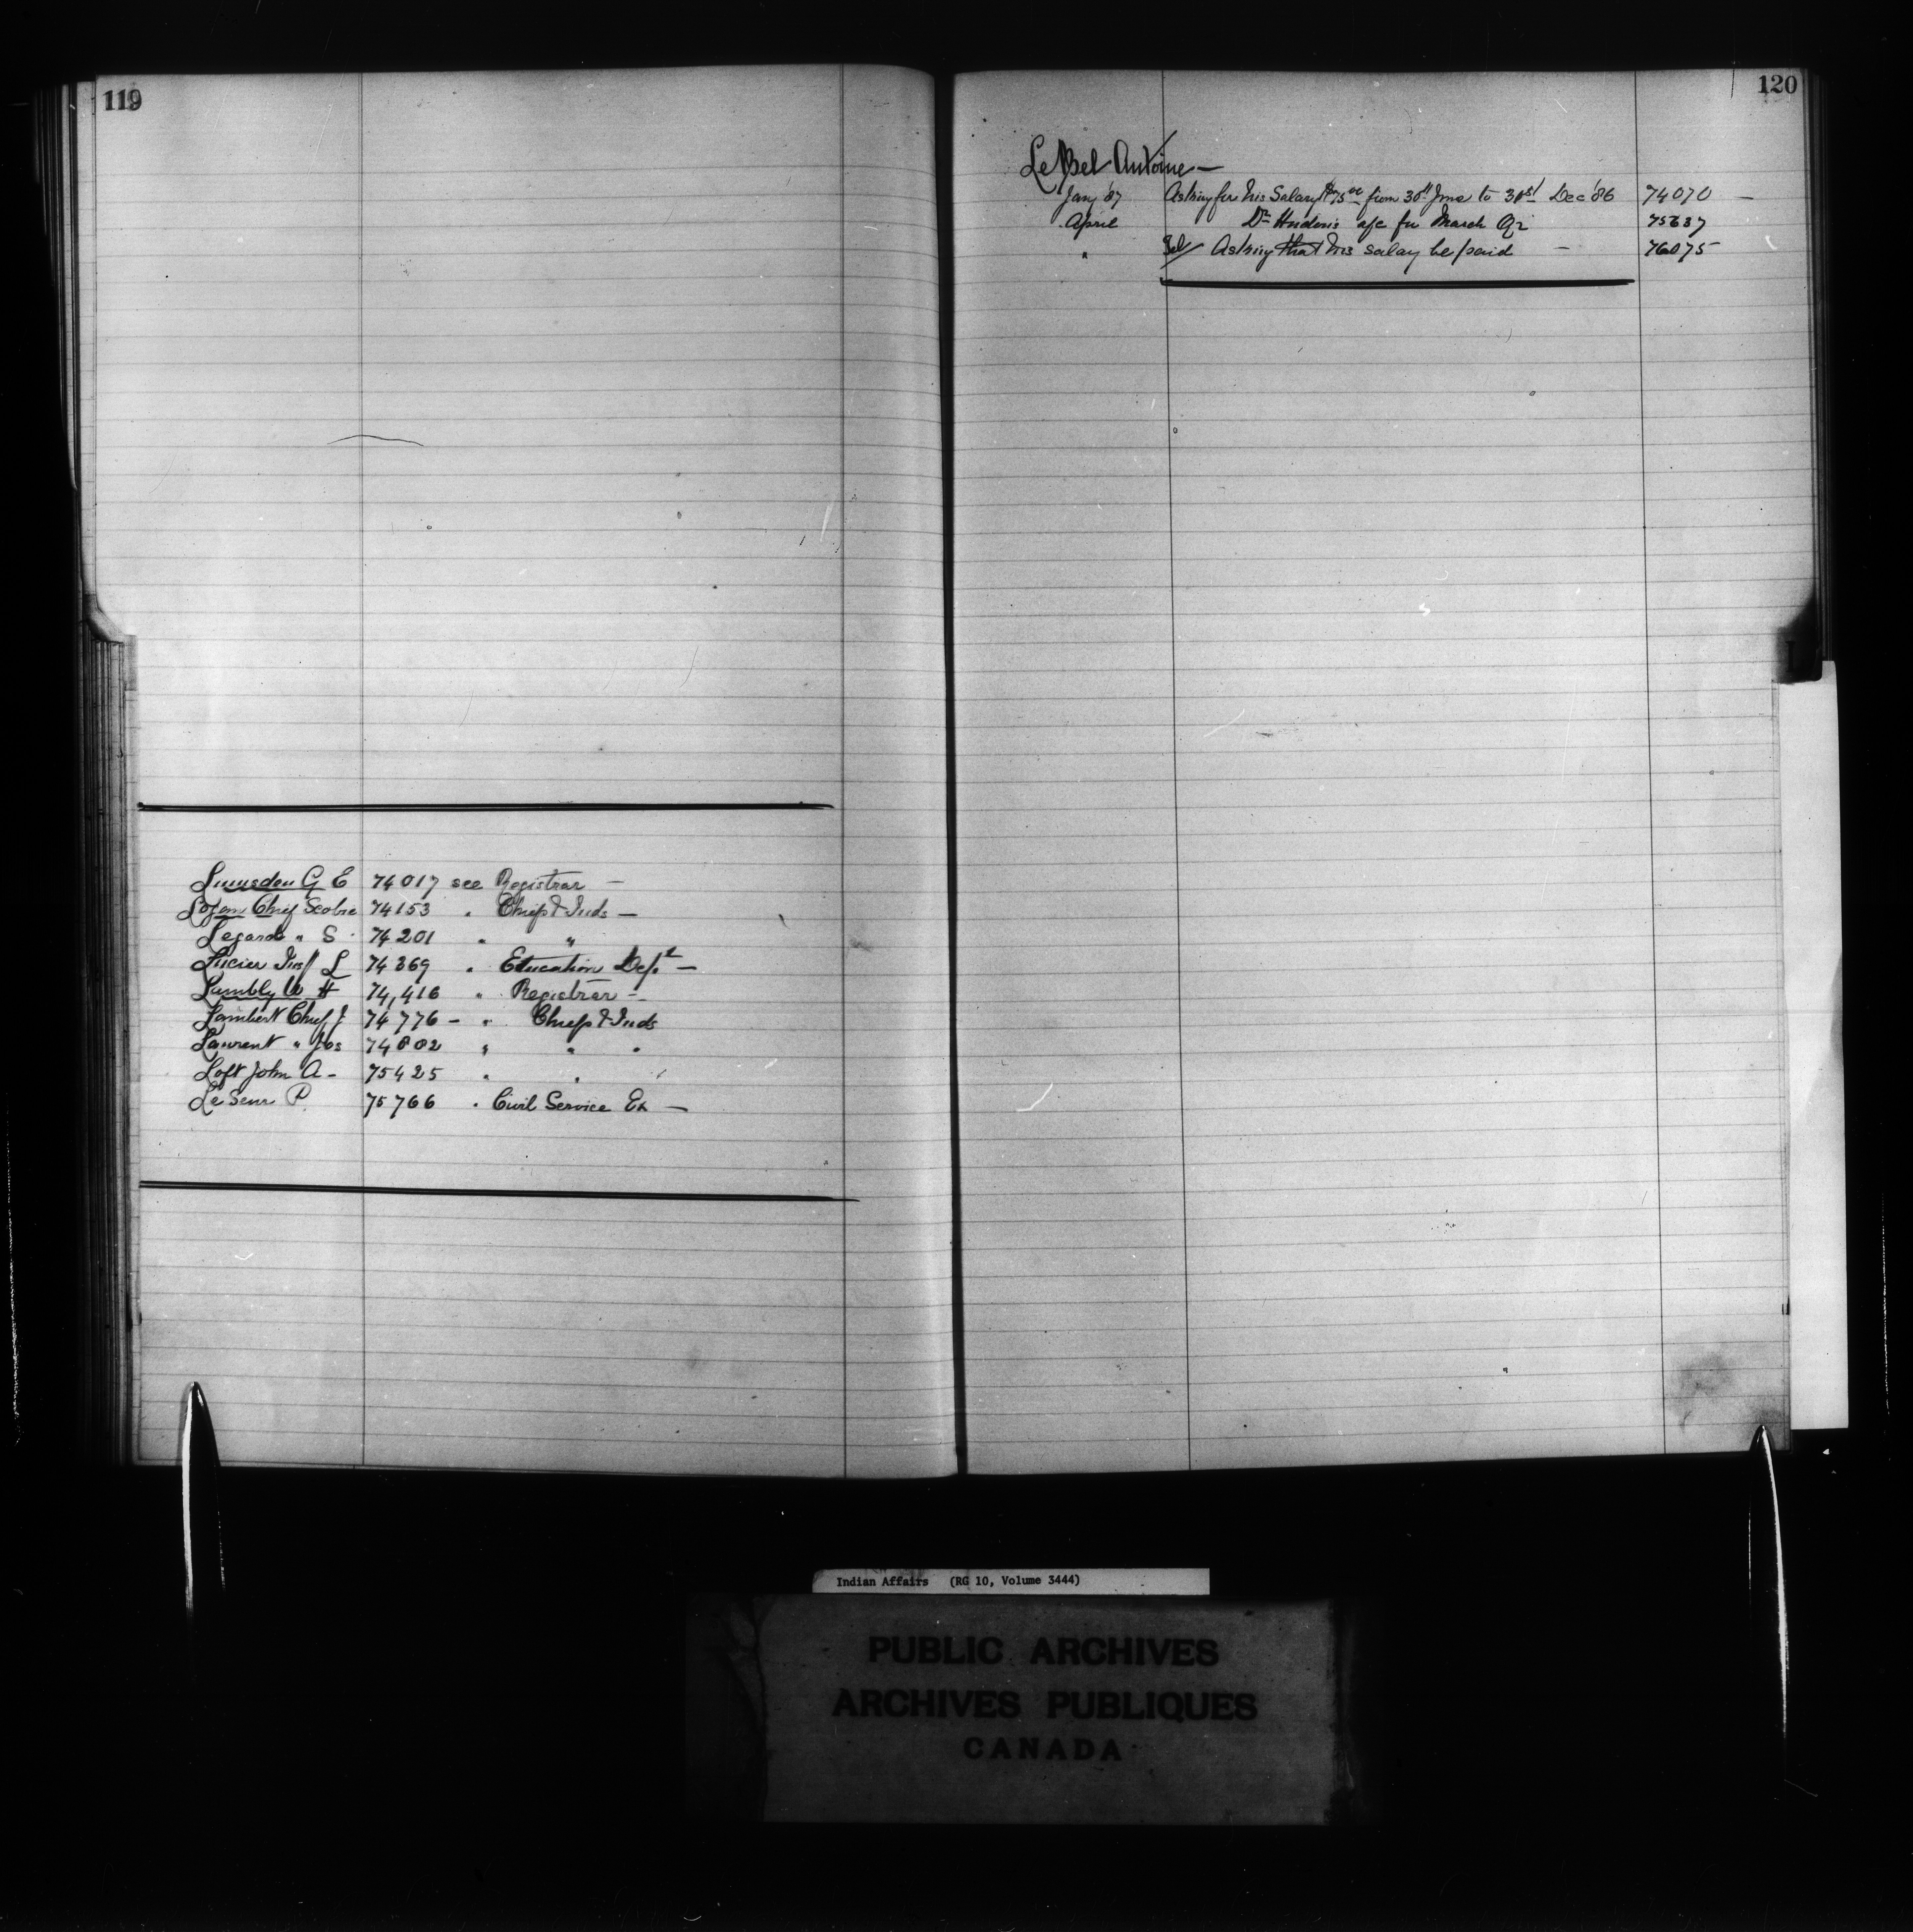 119
Lumsden G E 74017 see Registrar —
Logan Chief Scobie 74153 " Chiefs & Inds —
Legarde " S 74201 " "
Lucier Insp L 74369 " Education Dept —
Lumbly W H 74,416 " Registrar —
Lambert Chief J 74776 — " Chiefs & Inds
Laurent " Jos 74802 " " "
Loft John A — 75425 " "
Le Seur P. 75766 " Civil Service Ex —
120
LeBel Antoine —
Jany '87 Asking for his Salary $75 00 from 30th June to 31st Dec '86 74070 —
April Dr a/c for March Qr 75637
" Asking that his salary be paid — 76075
Indian Affairs (RG 10, Volume 3444)
PUBLIC ARCHIVES
ARCHIVES PUBLIQUES
CANADA